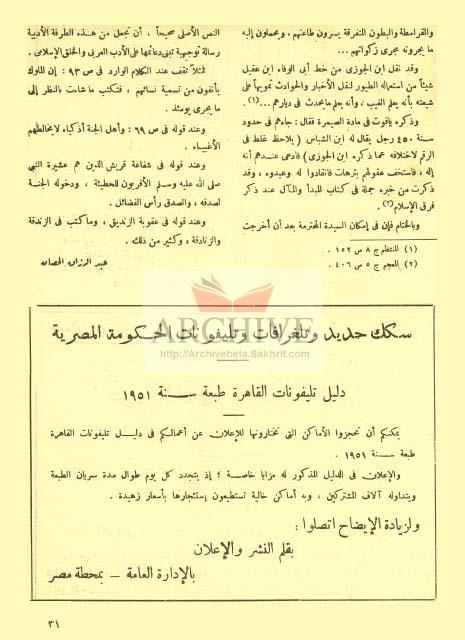 والقرامطة والبطون المتفرقة يسرون طاعتهم ، ويحملون إليه
ما يجرونه مجرى زكواتهم ...
وقد نقل ابن الجوزى من خط أبى الوفاء ابن عقيل
شيئاً من استعماله الطيور لنقل الأخبار والحوادث تمويهاً على
شيعته بأنه يعلم الغيب ، وأنه يعلم ما يحدث فى ديارهم ...(١)
وذكره ياقوت فى مادة الصيمرة فقال : جاءهم فى حدود
سنة ٤٥٠ رجل يقال له ابن الشباس ( يلاحظ غلط فى
الرقم لاختلافه عما ذكره ابن الجوزى ) فادعى عندهم أنه
إله ، فاستخف عقولهم بترهات فانقادوا له وعبدوه ، وقد
ذكرت من خبره جملة فى كتاب المبدأ والمآل عند ذكر
فرق الإسلام(٢)
وبالختام فإن فى إمكان السيدة المحترمة بعد أن أخرجت
(١) المنتظم ج ٨ س ١٥٢ .
(٢) المعجم ج ٥ س ٤٠٦ .
النص الأصلى صحيحاً ، أن تجعل من هذه الطرفة الأدبية
رسالة توجيهية تبنى دعائمها على الأدب العربى والخلق الإسلامى .
فمثلا تقف عند الكلام الوارد فى ص ٩٣ : إن الملوك
يأنفون من تسمية نسائهم ، فتكتب ما شاءت بالنظر إلى
ما يجرى يومئذ .
وعند قوله فى ص ٦٩ : وأهل الجنة أذكياء لا يخالطهم
الأغبياء .
وعند قوله فى شفاعة قريش الذين هم عشيرة النبى
صلى الله عليه وسلم الأقربون للحطيئة ، ودخوله الجنة
لصدقه ، والصدق رأس الفضائل .
وعند قوله فى عقوبة الزنديق ، وما كتب فى الزندقة
والزنادقة ، وكثير من ذلك .
عبد الرزاق الحصان
ARCHIVE
http://Archivebeta.Sakhrit.com
سكك حديد وتلغرافات وتليفونات الحكومة المصرية
دليل تليفونات القاهرة طبعة سنة ١٩٥١
يمكنكم أن تحجزوا الأماكن التى تختارونها للإعلان عن أعمالكم فى دليل تليفونات القاهرة
طبعة سنة ١٩٥١ .
والإعلان فى الدليل المذكور له مزايا خاصة ؛ إذ يتجدد كل يوم طوال مدة سريان الطبعة
ويتداوله آلاف المشتركين ، وبه أماكن خالية تستطيعون استئجارها بأسعار زهيدة .
ولزيادة الإيضاح اتصلوا :
بقلم النشر والإعلان
بالإدارة العامة – بمحطة مصر
٣١